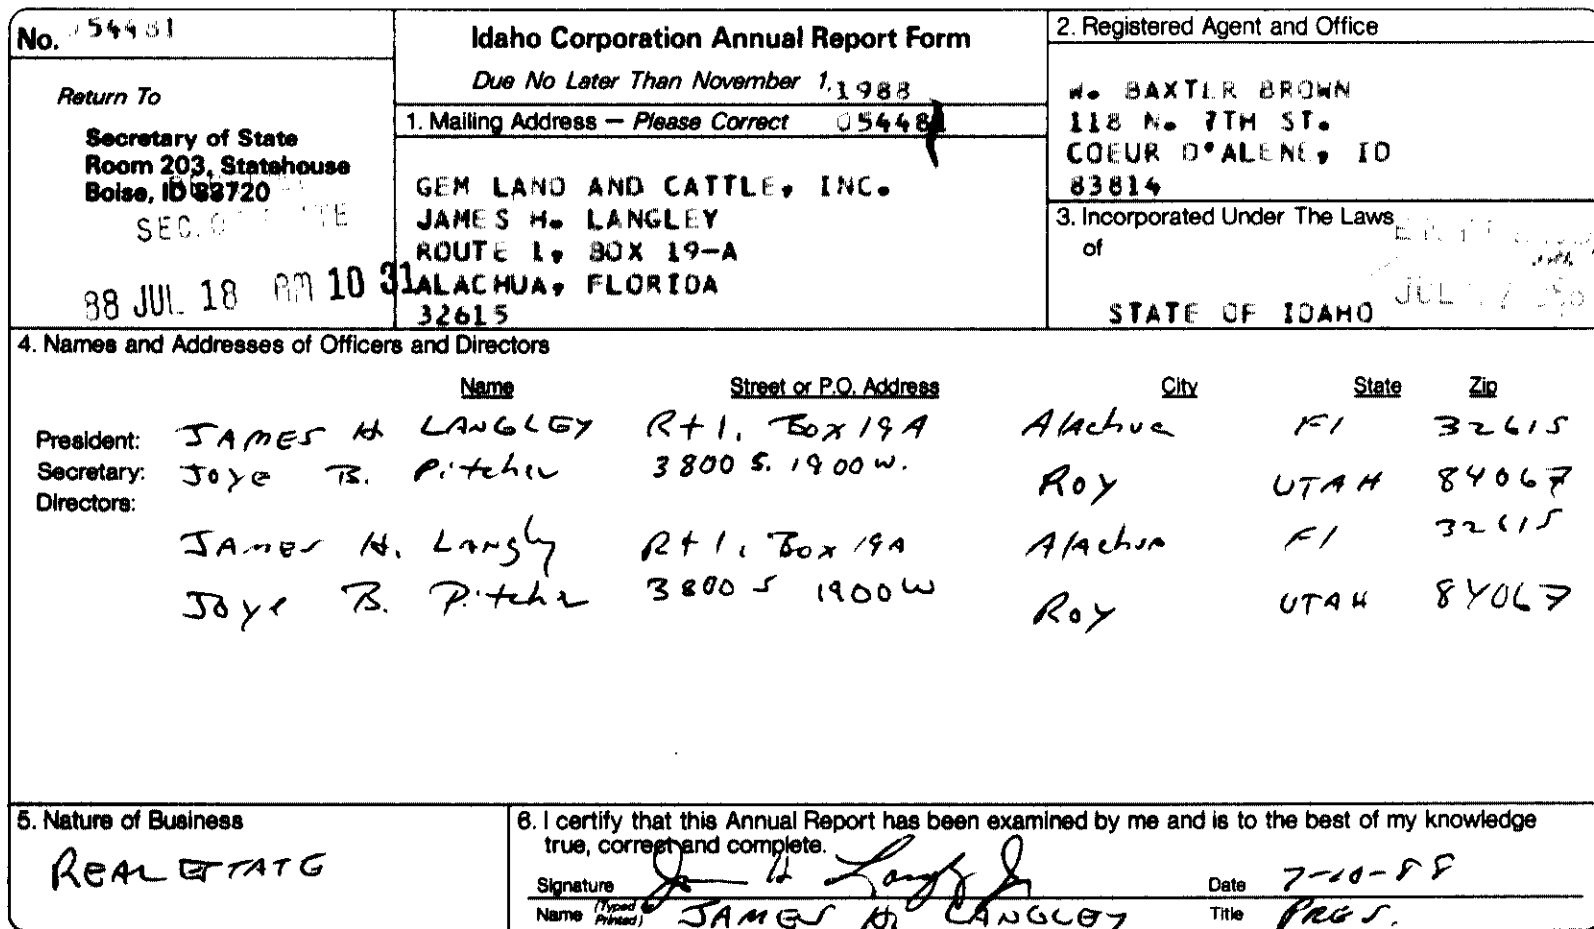 No. 54481
Idaho Corporation Annual Report Form
Due No Later Than November 1, 1988
Return To
Secretary of State
Room 203, Statehouse
Boise, ID 83720
SEC.
88 JUL 18 AM 10 31
1. Mailing Address — Please Correct 054481
GEM LAND AND CATTLE, INC.
JAMES H. LANGLEY
ROUTE 1, BOX 19-A
ALACHUA, FLORIDA
32615
2. Registered Agent and Office
W. BAXTER BROWN
118 N. 7TH ST.
COEUR D'ALENE, ID
83814
3. Incorporated Under The Laws
of
STATE OF IDAHO
JUL
4. Names and Addresses of Officers and Directors
Name Street or P.O. Address City State Zip
President: JAMES H LANGLEY Rt 1, Box 19A Alachua Fl 32615
Secretary: Joye B. Pitcher 3800 S. 1900 W. Roy UTAH 84067
Directors:
JAMES H. Langly Rt 1, Box 19A Alachua Fl 32615
Joye B. Pitcher 3800 S 1900 W Roy UTAH 84067
5. Nature of Business
REAL ESTATE
6. I certify that this Annual Report has been examined by me and is to the best of my knowledge
true, correct and complete.
Signature James H Langley Jr Date 7-10-88
Name (Typed or Printed) JAMES H. LANGLEY Title PRES.